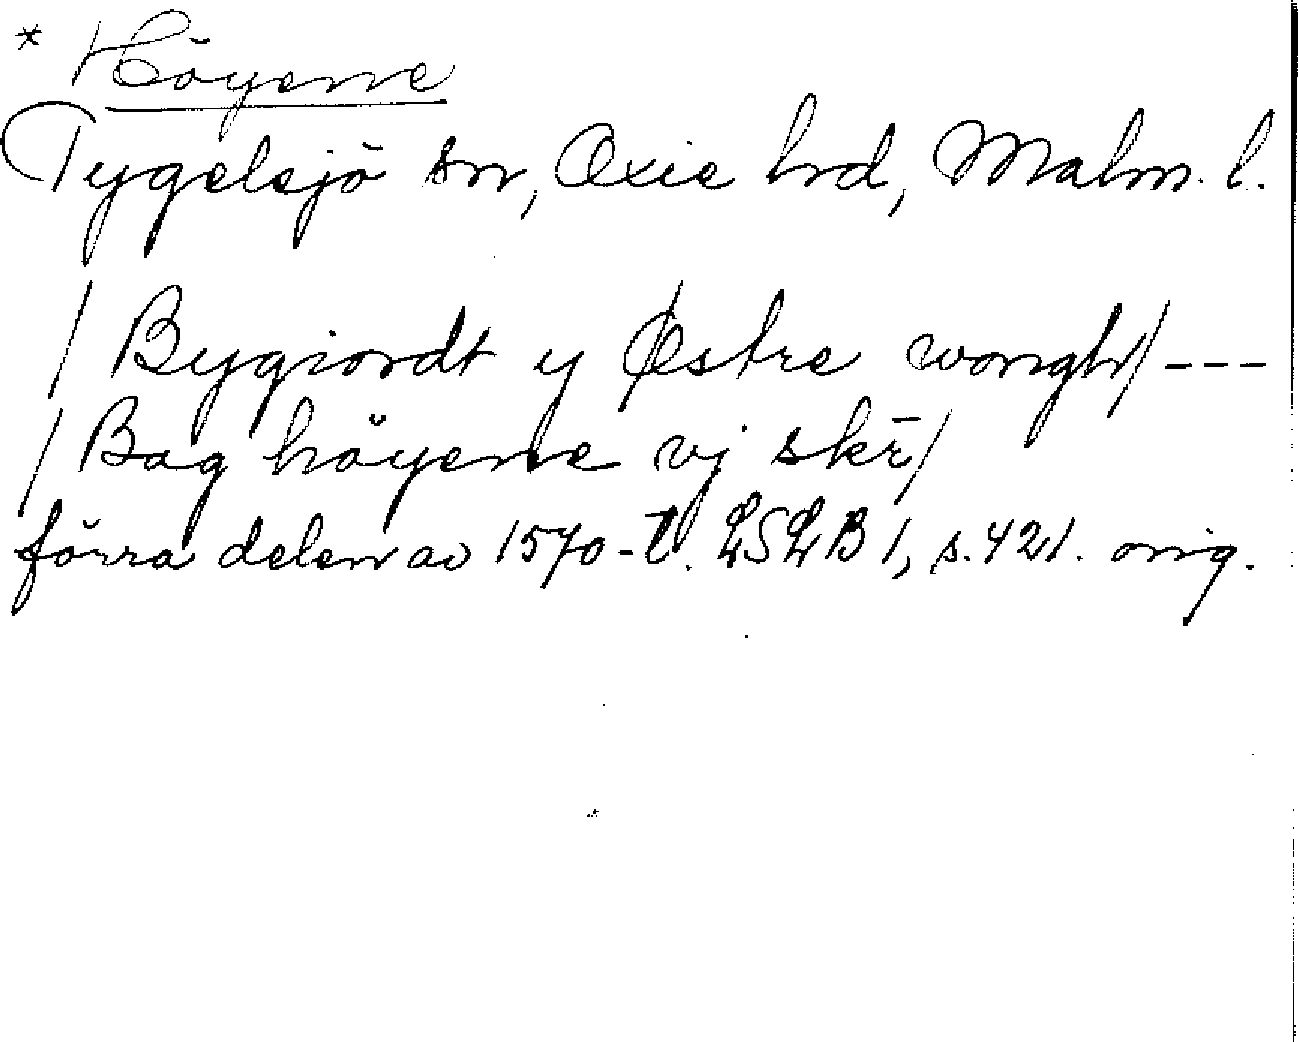 * Höyene
Tygelsjö sn, Oxie hrd, Malm. l.
/ Bygiordt y Østre wongh/ ---
/ Bag höyene vj skr̄/
förra delen av 1570-t. LSLB 1, s. 421. orig.